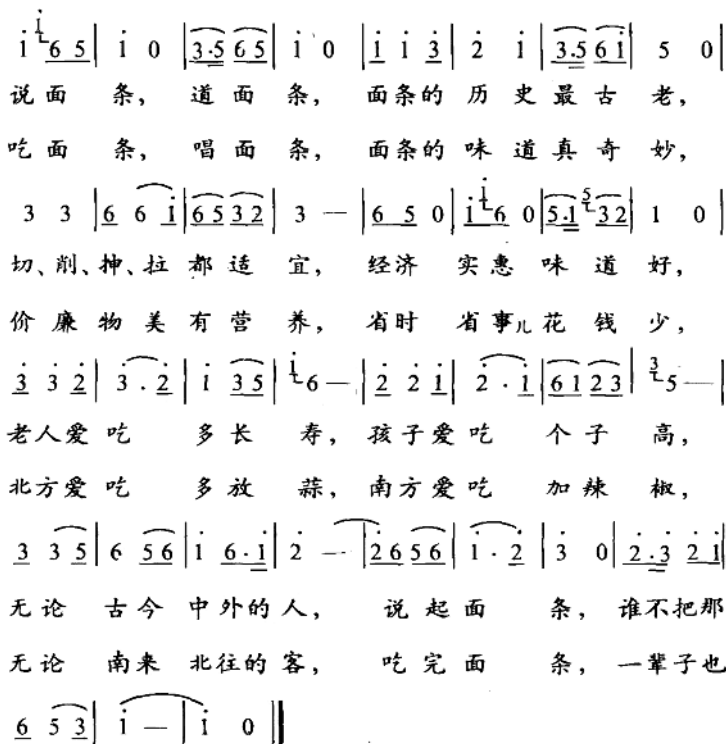 i i 6 5 | i 0 | 3·5 6 5 | i 0 | i i 3 | 2 i | 3·5 6 i | 5 0 |
说面 条， 道面 条， 面条的 历 史 最 古 老，
吃面 条， 唱面 条， 面条的 味 道 真 奇 妙，
3 3 | 6 6 i | 6 5 3 2 | 3 — | 6 5 0 | i i 6 0 | 5·1 5 3 2 | 1 0 |
切、削、抻、拉 都 适 宜， 经济 实惠 味 道 好，
价 廉 物 美 有 营 养， 省时 省事儿 花 钱 少，
3 3 2 | 3 . 2 | i 3 5 | i 6 — | 2 2 i | 2 . i | 6 1 2 3 | 3 5 — |
老人爱 吃 多 长 寿， 孩子爱 吃 个 子 高，
北方爱 吃 多 放 蒜， 南方爱 吃 加 辣 椒，
3 3 5 | 6 5 6 | i 6·i | 2 — | 2 6 5 6 | i · 2 | 3 0 | 2·3 2 i |
无论 古今 中外的 人， 说 起 面 条， 谁不把那
无论 南来 北往的 客， 吃 完 面 条， 一辈子也
6 5 3 | i — | i 0 ‖